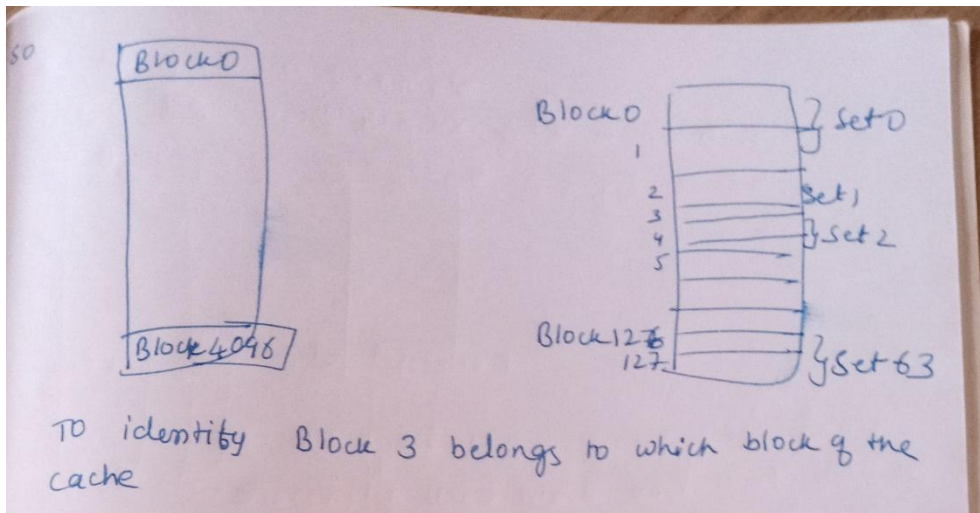 so
Block0
Block 4096
Block0
1
2
3
4
5
Block126
127
Set0
Set1
Set2
Set63
To identify Block 3 belongs to which block of the
cache